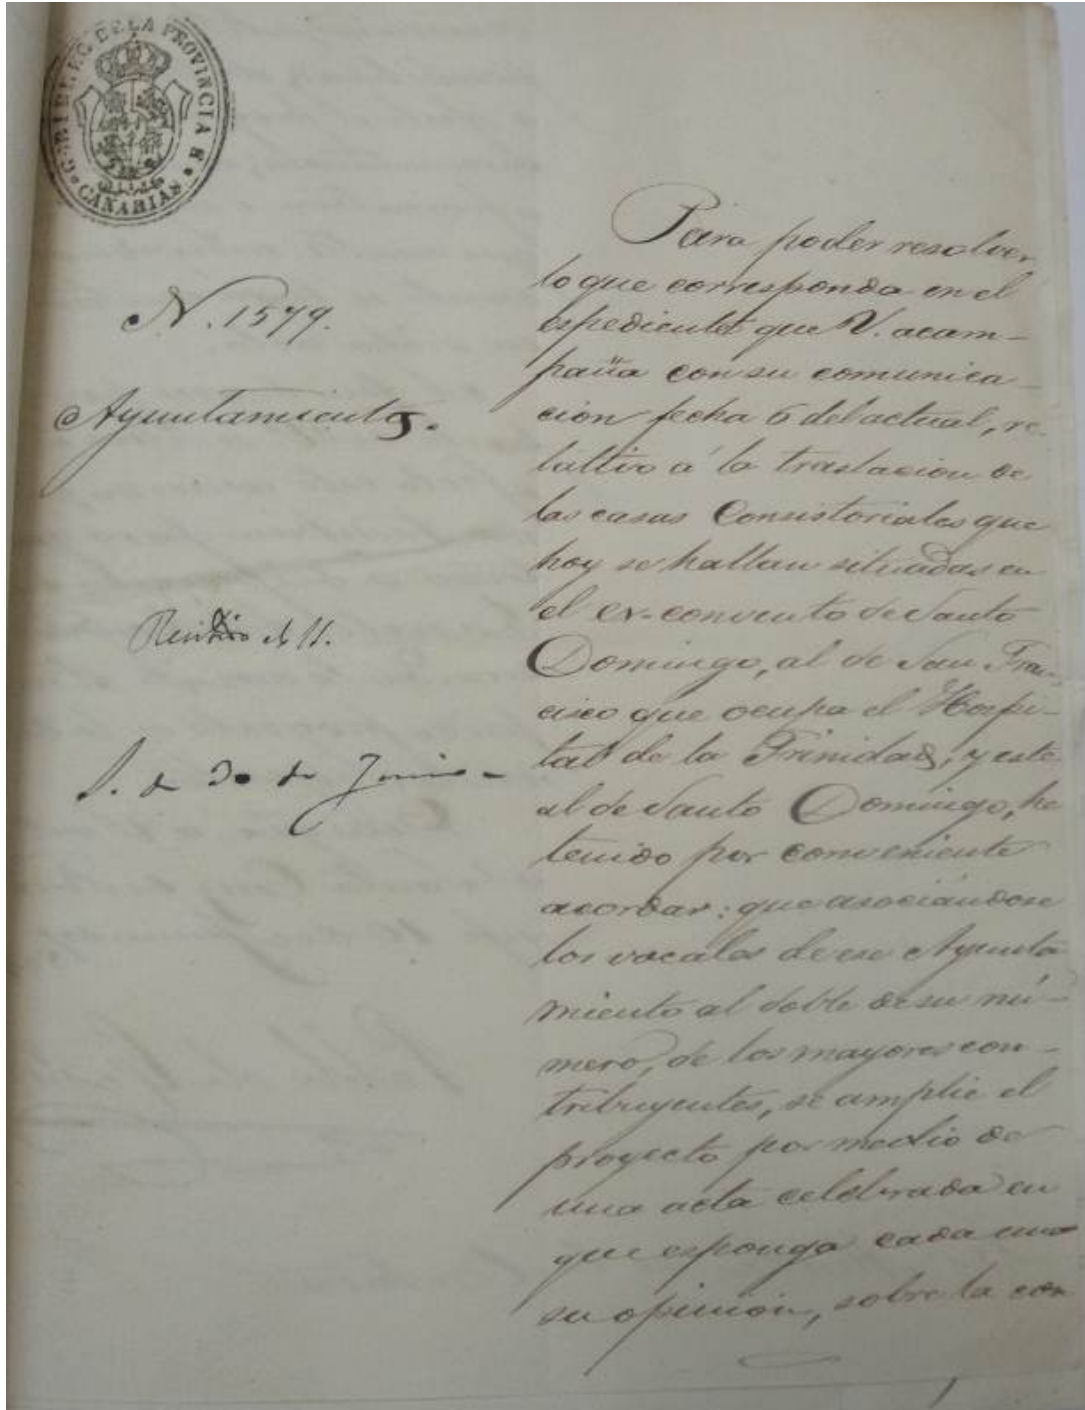 GOBIERNO DE LA PROVINCIA DE CANARIAS
N. 1579.
Ayuntamientos.
Recibido el 11.
S. de 30 de Junio
Para poder resolver
lo que corresponda en el
espediente que V. acom-
paña con su comunica-
cion fecha 6 del actual, re-
lativo á la traslacion de
las casas Consistoriales que
hoy se hallan situadas en
el ex-convento de Santo
Domingo, al de San Fran-
cisco que ocupa el Hospi-
tal de la Trinidad, y este
al de Santo Domingo, he
tenido por conveniente
acordar: que asociándose
los vocales de ese Ayunta
miento al doble de su nú-
mero, de los mayores con-
tribuyentes, se amplie el
proyecto por medio de
una acta celebrada en
que esponga cada uno
su opinion, sobre la con